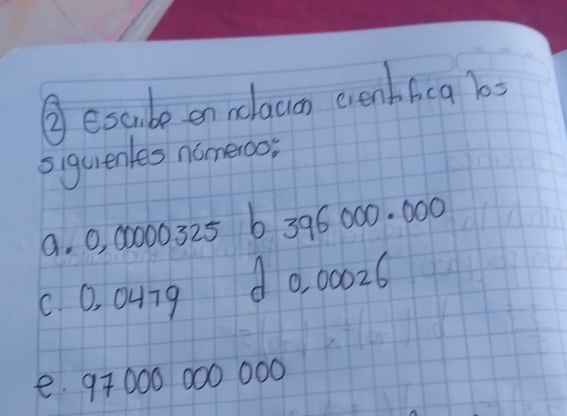 ② escribe en notación científica los
siguientes números:
a. 0,00000325 b 396 000.000
c. 0,0479 d 0,00026
e. 97 000 000 000